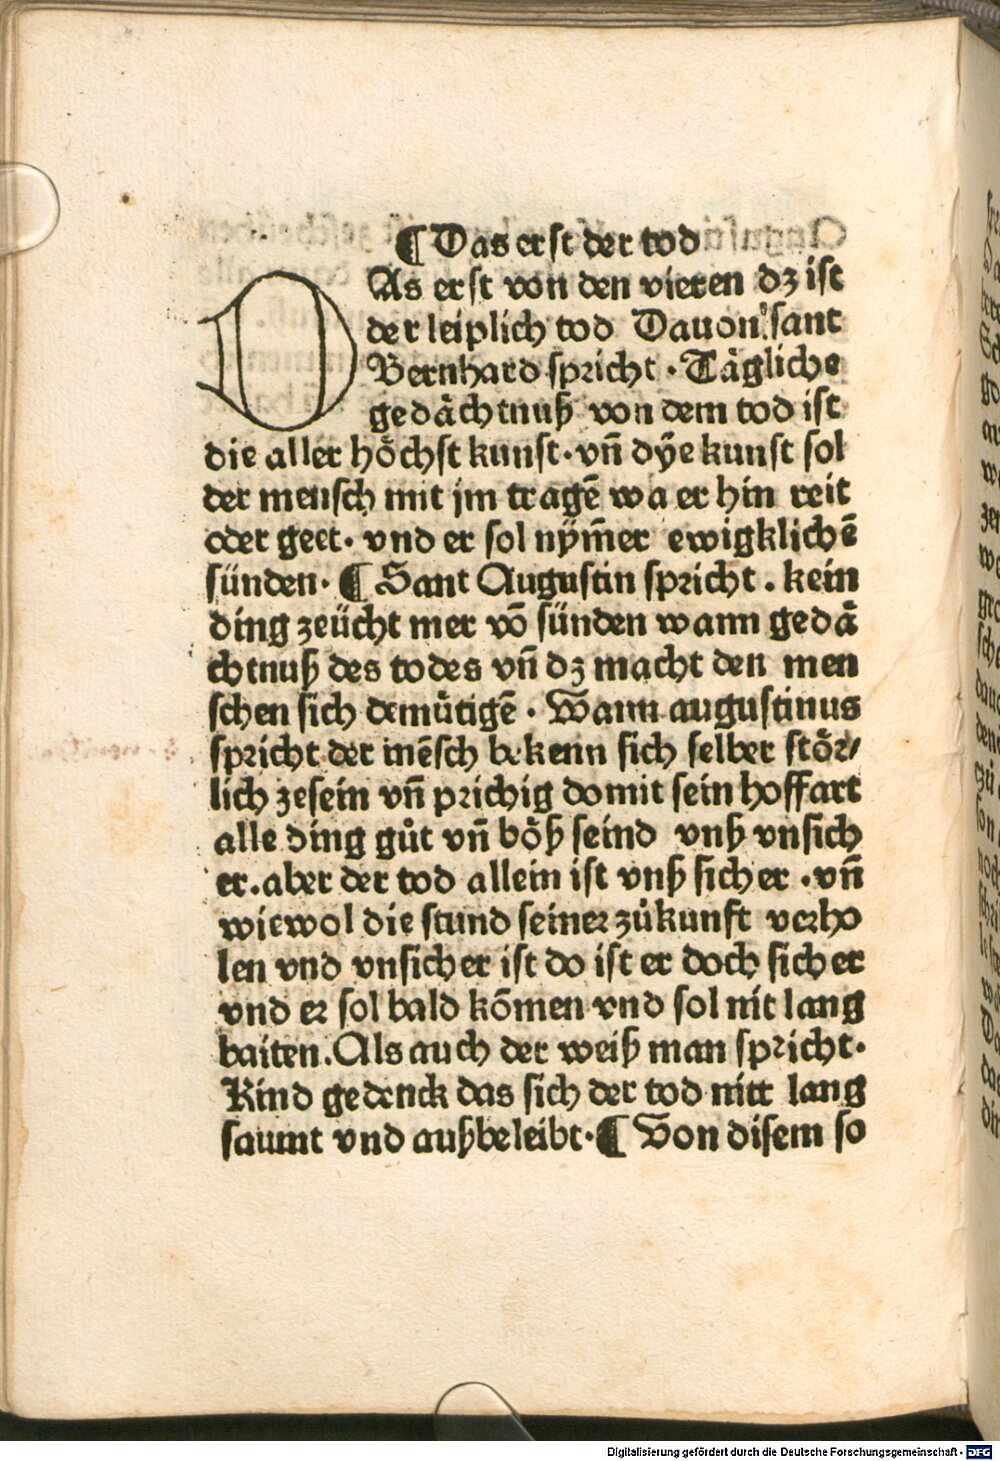 ¶ Das erst der tod
DAs erst von den vieren dz ist
der leiplich tod Dauon sant
Bernhard spricht · Tägliche
gedächtnuß von dem tod ist
die aller höchst kunst · vn̄ dÿe kunst sol
der mensch mit jm tragē wa er hin reit
oder geet · vnd er sol nym̄er ewigklichē
sünden · ¶ Sant Augustin spricht . kein
ding zeücht mer vō sünden wann gedä
chtnuß des todes vn̄ dz macht den men
schen sich demütigē · Wann augustinus
spricht der mēsch bekenn sich selber stör/
lich zesein vn̄ prichig domit sein hoffart
alle ding gůt vn̄ böß seind vnß vnsich
er . aber der tod allein ist vnß sicher · vn̄
wiewol die stund seiner zůkunft verho
len vnd vnsicher ist do ist er doch sicher
vnd er sol bald kōmen vnd sol nit lang
baiten . Als auch der weiß man spricht ·
Kind gedenck das sich der tod nitt lang
saumt vnd außbeleibt · ¶ Von disem so
Digitalisierung gefördert durch die Deutsche Forschungsgemeinschaft - DFG